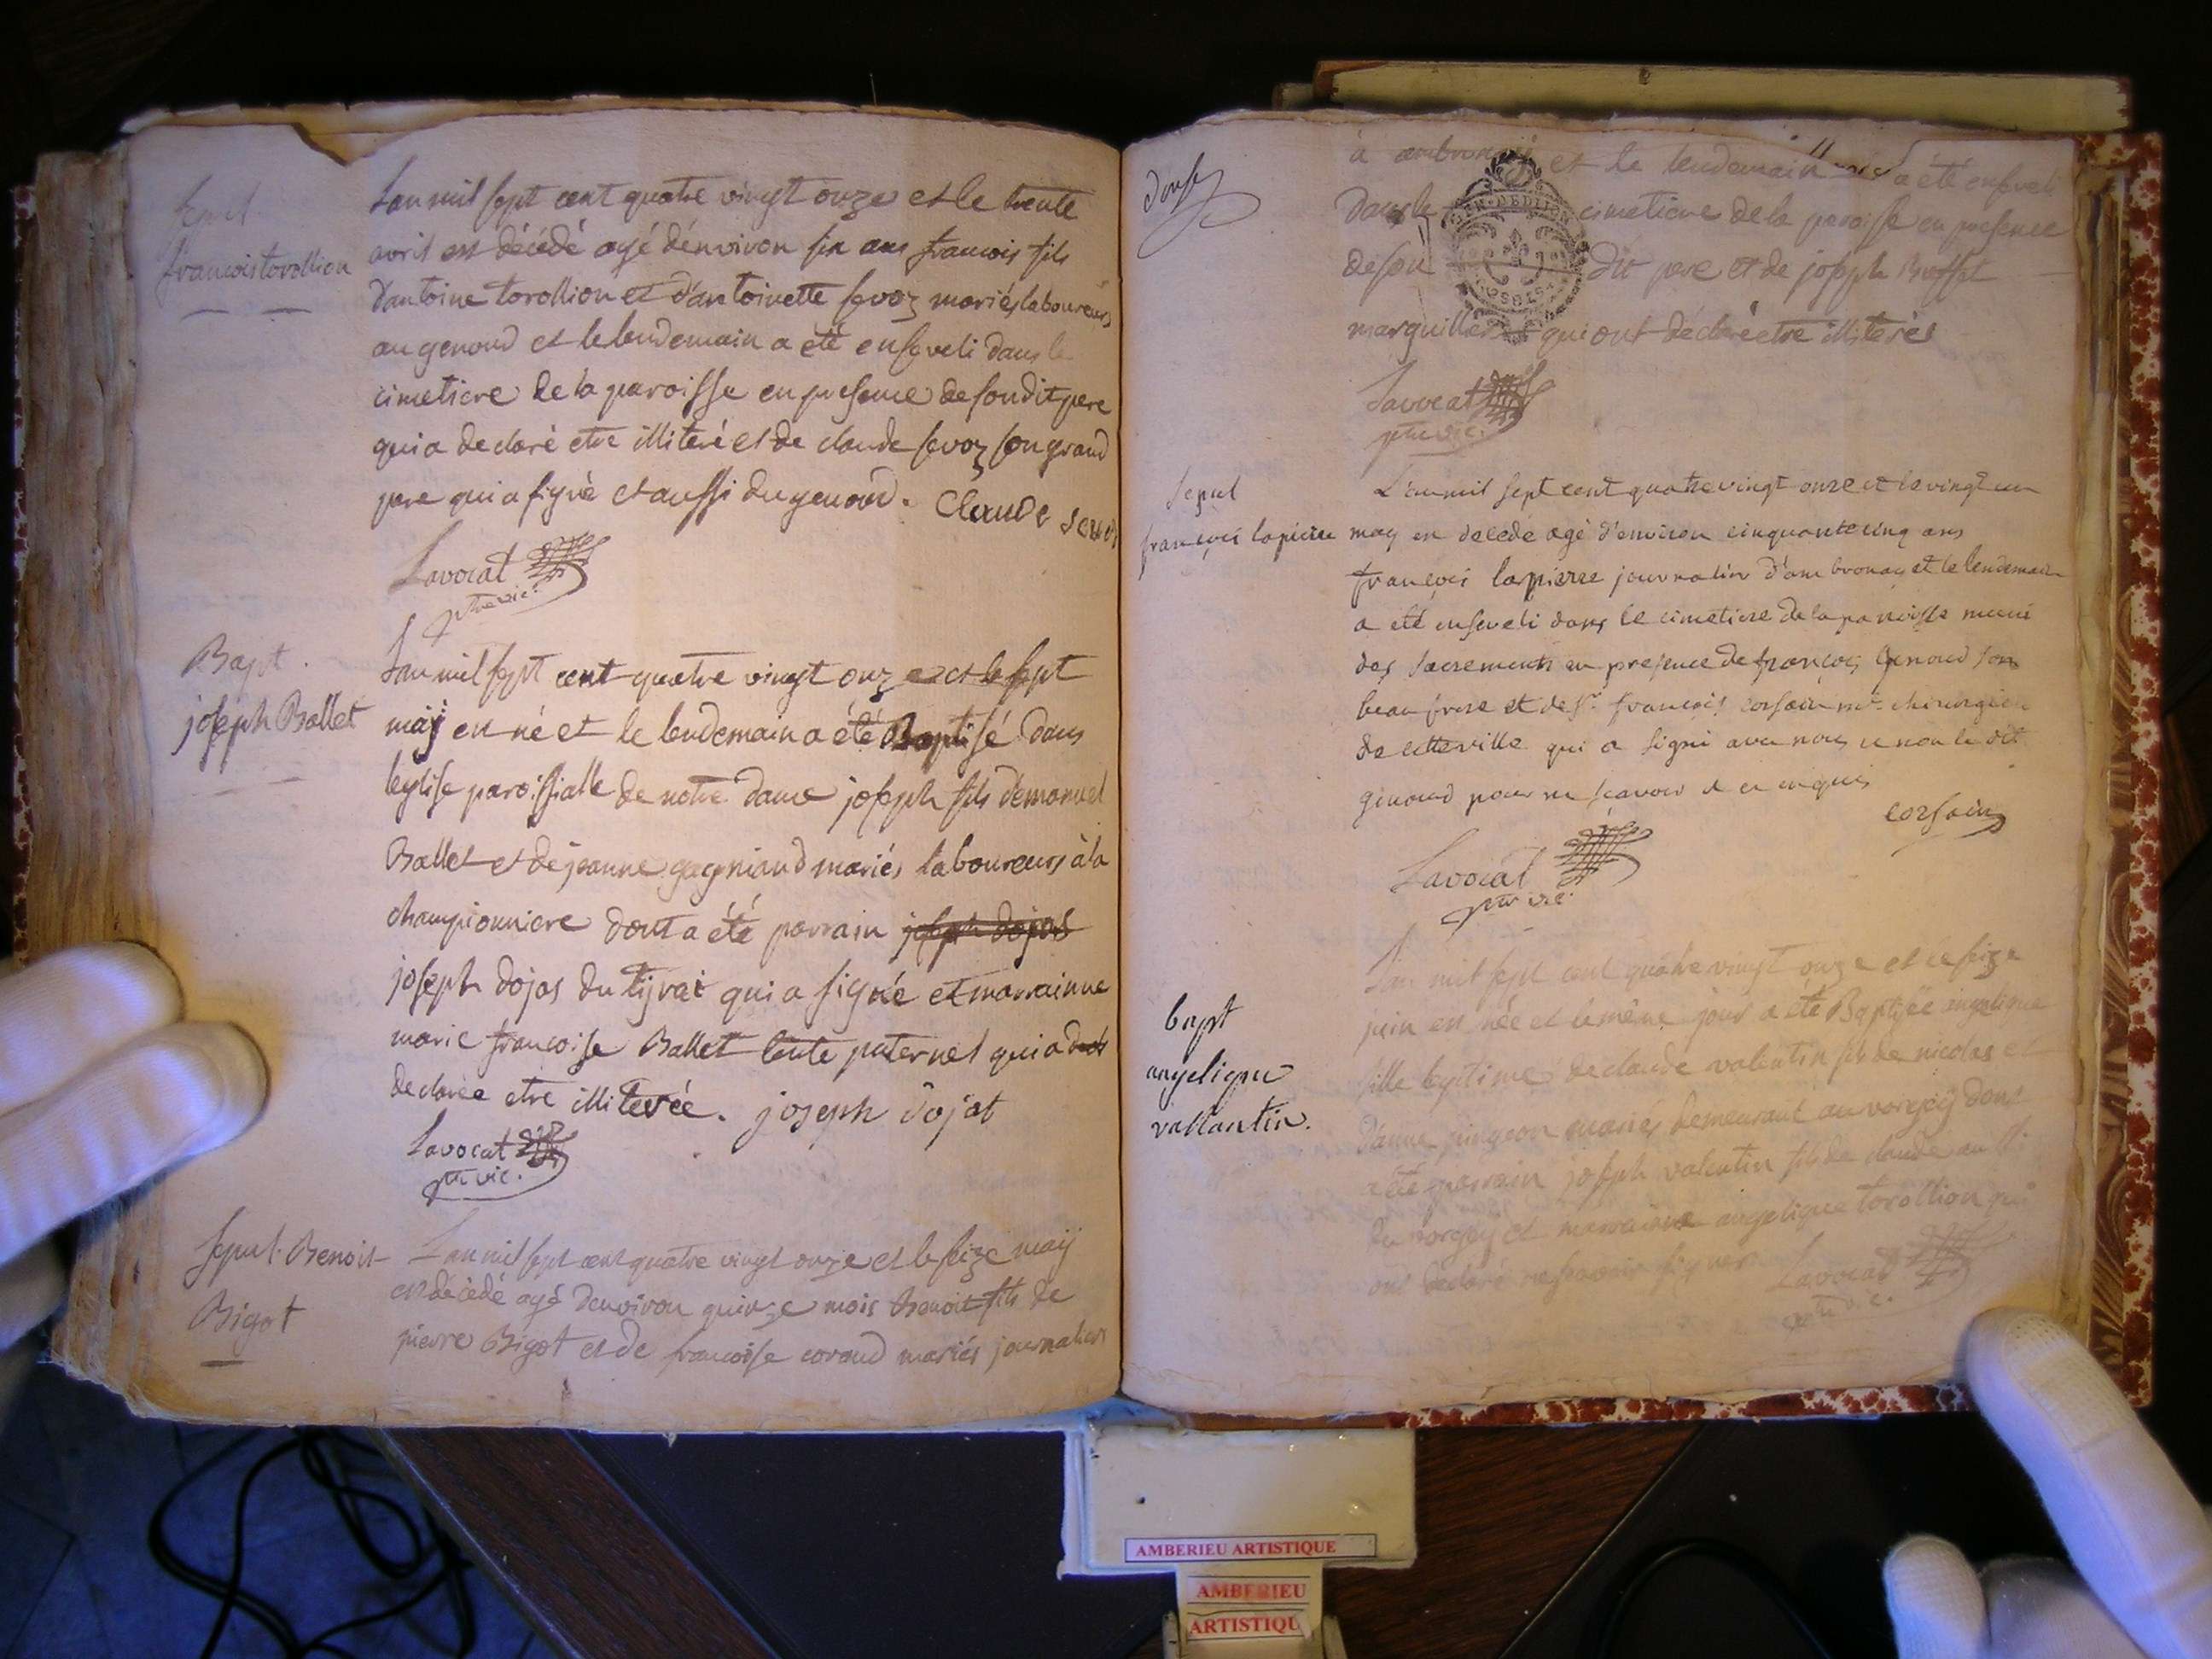 Sepul
francois torollion
L'an mil sept cent quatre vingt onze et le trente
avril est décédé agé dénviron six ans francois fils
d'antoine torollion et d'antoinette sevoz mariés laboureurs
au genoud et le lendemain a été enseveli dans le
cimetiere de la paroisse en presence de son dit pere
qui a declaré etre illiteré et de claude sevoz son grand
pere qui a signé et aussi du genoud. Claude sevoz
Lavocat
ptre vic.
Bapt.
joseph Ballet
L'an mil sept cent quatre vingt onze et le sept
maÿ en né et le lendemain a été Baptisé dans
leglise paroissialle de notre dame joseph fils demanuel
Ballet et de jeanne gagniaud mariés laboureurs à la
championniere dont a été parrain joseph dojas
joseph dojas du tijrai qui a signé et marrainne
marie francoise Ballet tente paternel qui a decl
declarée etre illiterée. joseph dojat
Lavocat
ptre vic.
Sepul. Benoit
Bigot
L'an mil sept cent quatre vingt onze et le seize maÿ
est décédé agé denviron quinze mois Benoit fils de
pierre Bigot et de francoise coraud mariés journaliers
douse
à ambronaÿ et le lendemain a été enseveli
dans le cimetiere de la paroisse en presence
de son dit pere et de joseph Brosset
marguillers qui ont déclaré etre illiterés
Lavocat
ptre vic.
Sepul
françois lapierre
L'an mil sept cent quatre vingt onze et le vingt un
may en decedé agé d'environ cinquante cinq ans
françois lapierre journalier d'ambronay et le lendemain
a été enseveli dans le cimetiere de la paroisse muni
des sacrements en presence de françois Genoud son
beau frere et de sr. françois corsain mt. chirurgien
de cette ville qui a signé avec nous et non le dit
genoud pour ne sçavoir de ce enquis
corsain
Lavocat
ptre vic.
bapt
angelique
vallantin.
L'an mil sept cent quatre vingt onze et le seize
juin est née et le même jour a été Baptisée angelique
fille legitime de claude valentin fils de nicolas et
d'anne pingeon mariés demeurant au vorgeÿ dont
a été parrain joseph valentin fils de claude
du vorgeÿ et marrainne angelique torollion qui
ont declaré ne scavoir signer. Lavocat
ptre vic.
AMBERIEU ARTISTIQUE
AMBERIEU
ARTISTIQU